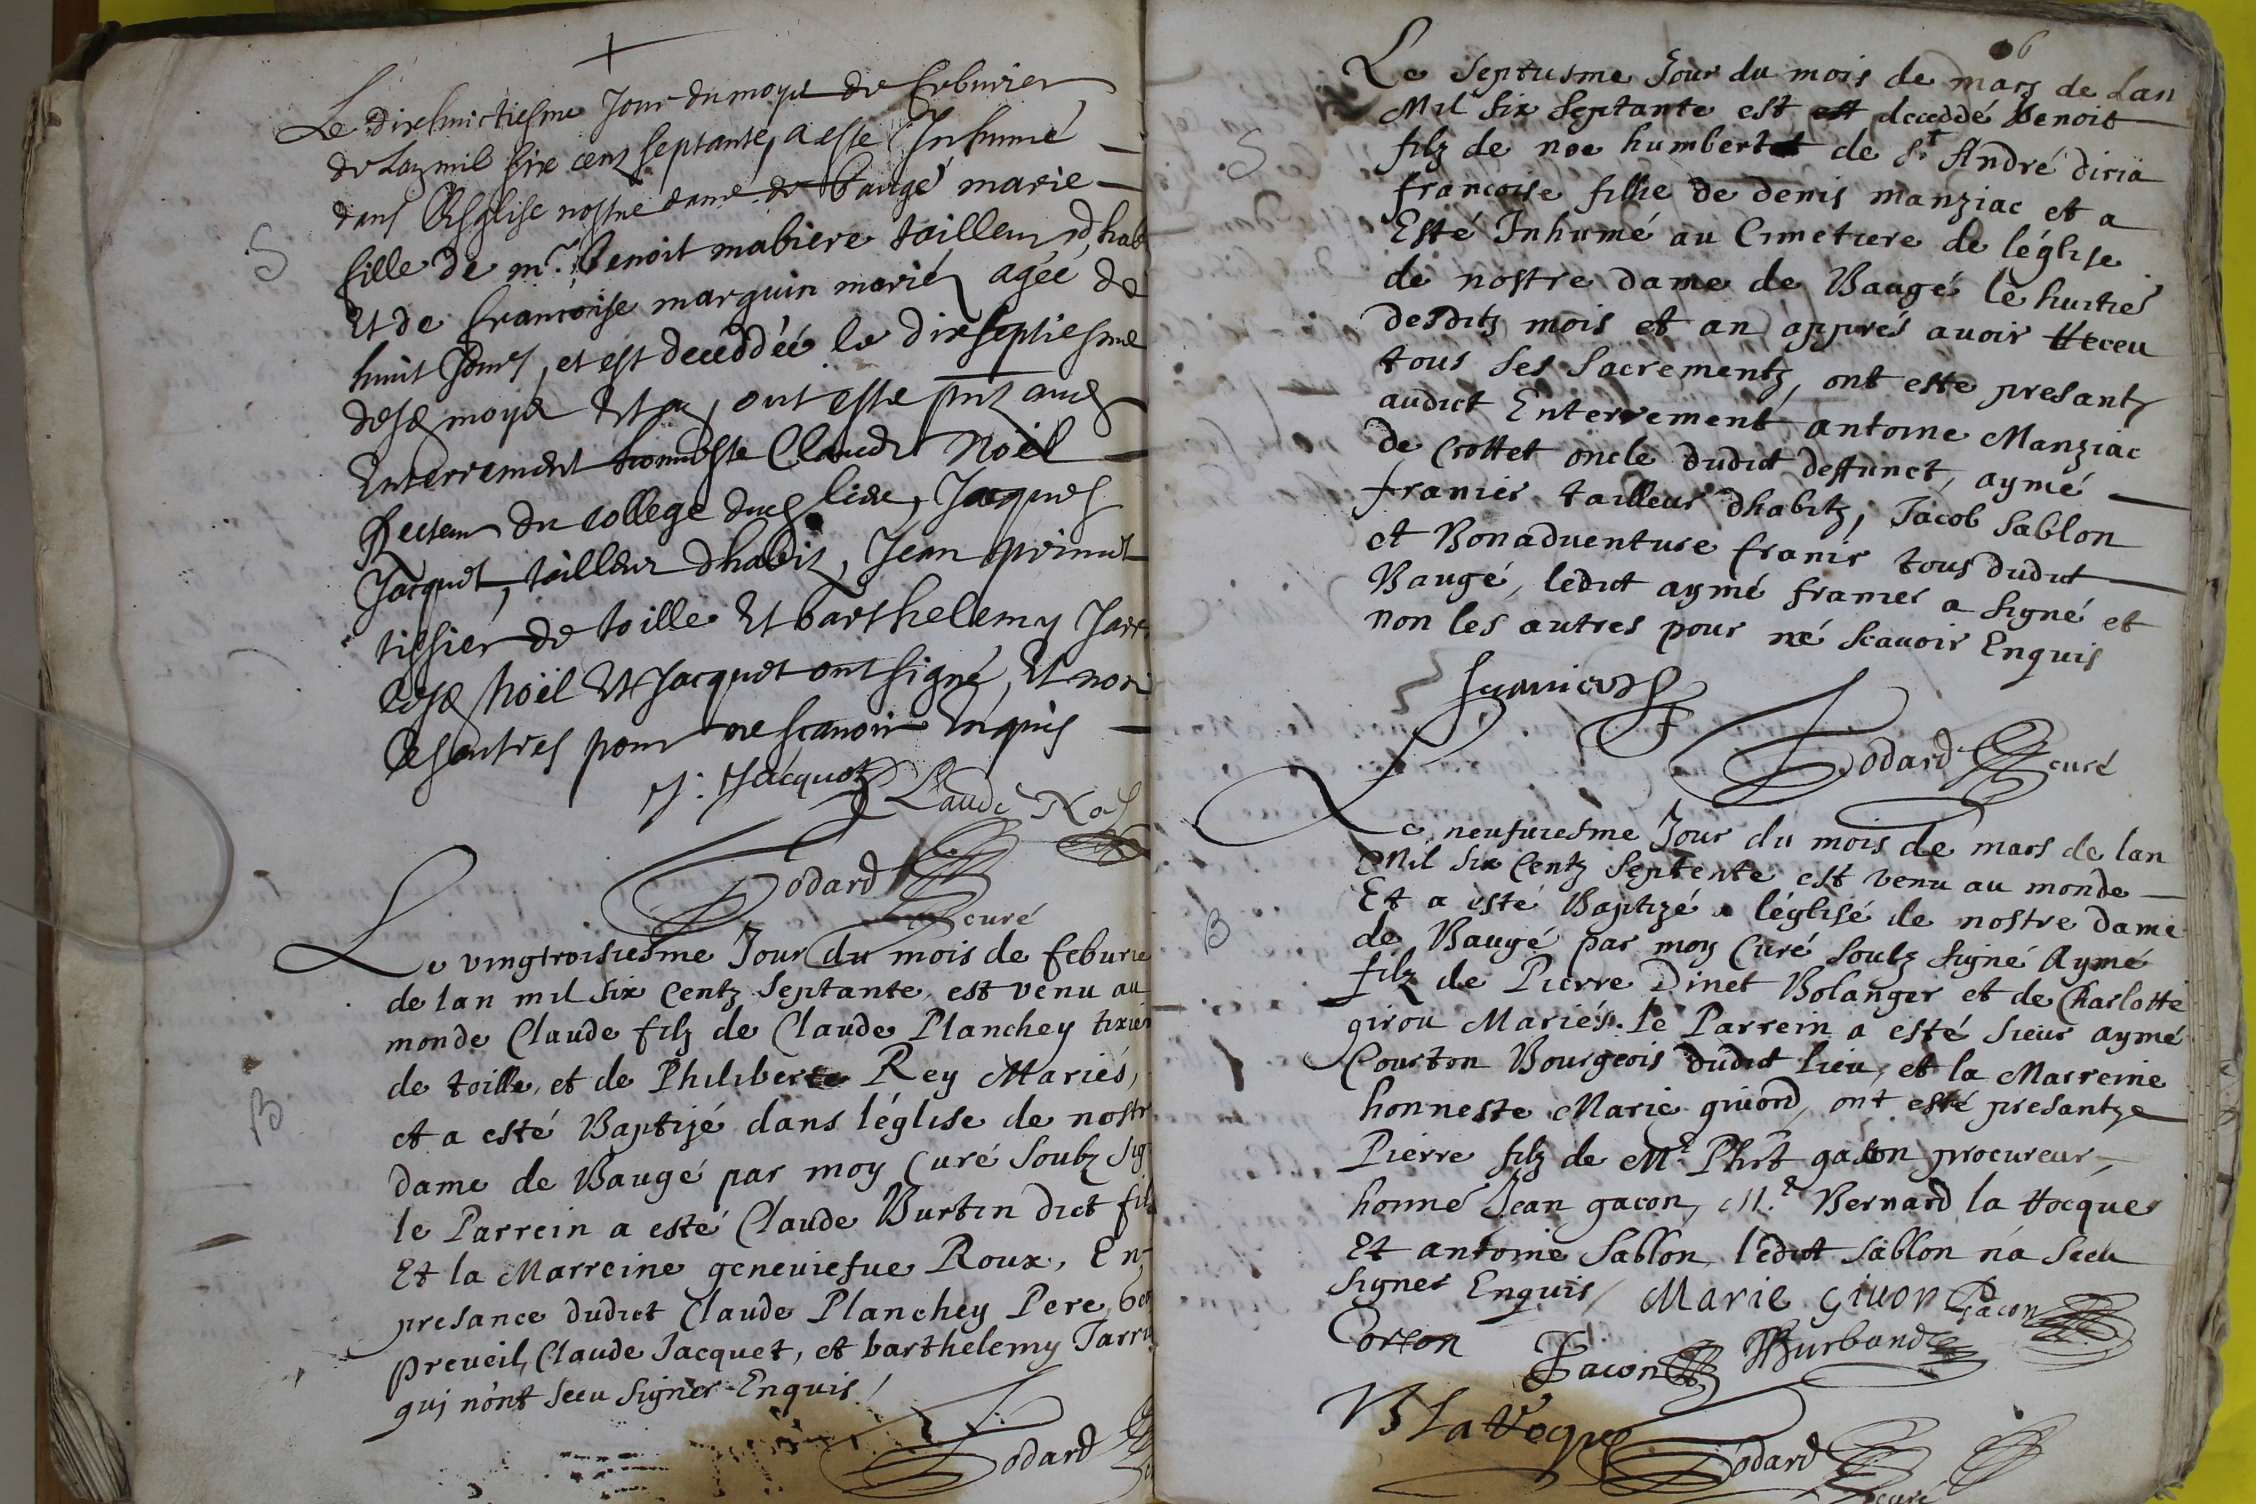 S
Le dixhuictiesme Jour du moys de febvrier
de Lan mil six cenz septante, a esté Inhumé
dans l'Esglise nostre dame de baugé marie
fille de mr. benoit mabiere tailleur dhab
Et de francoise marguin mariéz agéé de
huit Jours, et est deceddéé le dixseptiesme
moys Et an, ont esté pntz
Enterrement honneste Claude Noël
Recteur du college dud lieu, Jacques
Jacquet, tailleur dhabitz, Jean
tissier de toille Et barthelemy Jarr
Noël Et Jacquet ont signé, Et non
les autres pour ne scavoir Enquis
J. Jacquet Claude Noel
Godard curé
B
Le vingtroisiesme Jour du mois de feburie
de lan mil six Centz Septante, est venu au
monde Claude filz de Claude Planchey tixier
de toille, et de Philiberte Rey Mariés,
et a esté Baptizé dans léglise de nostr
dame de Baugé par moy Curé Soubz sig
le Parrein a esté Claude Burtin dict fil
Et la Marreine geneuiefue Roux, En
presance dudict Claude Planchey Pere,
preveil, Claude Jacquet, et barthelemy Jarri
qui nont sceu Signer Enquis /
Godard
6
S
Le Septiesme Jour du mois de mars de Lan
Mil six Septante est est deceddé Benoit
filz de noe humbert de St. André diria
francoise fillie de denis manziac et a
Esté Inhumé au Cimetiere de léglise
de nostre dame de Baugé le huitié
desditz mois et an apprés auoir Receu
tous ses Sacrementz, ont esté presantz
audict Enterrement antoine Manziac
de Crottet oncle dudict deffunct, aymé
franier tailleur dhabitz, Jacob Sablon
et Bonaduenture franir tous dudict
Baugé, ledict aymé franier a signé et
non les autres pour né Scauoir Enquis
Godard curé
B
Le neufuiesme Jour du mois de mars de lan
Mil six Centz Septente est venu au monde
Et a esté Baptizé a léglisé de nostre Dame
de Baugé par moy Curé soubz signé Aymé
filz de Pierre Dinet Bolanger et de Charlotte
girou Mariés. le Parrein a esté sieur aymé
Courton Bourgeois dudict lieu, et la Marreine
honneste Marie giuord, ont esté presantz
Pierre filz de Mr. Phlt gacon procureur,
honné Jean gacon, Mr. Bernard la Rocque
Et antoine Sablon, ledict sablon na sceu
Signer Enquis / Marie givor Gacon
Corton Jacon Burband
B La Rocque Godard
curé